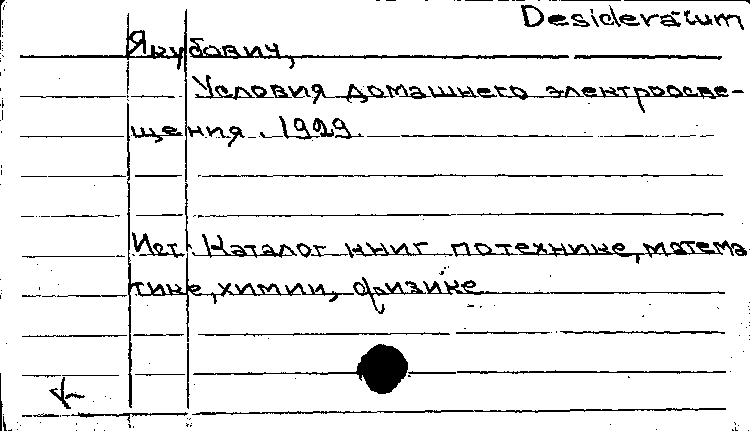 Desideratum
Якубович,
Условия домашнего электроосве-
щения. 1929.
Ист: Каталог книг по технике, матема
тике, химии, физике